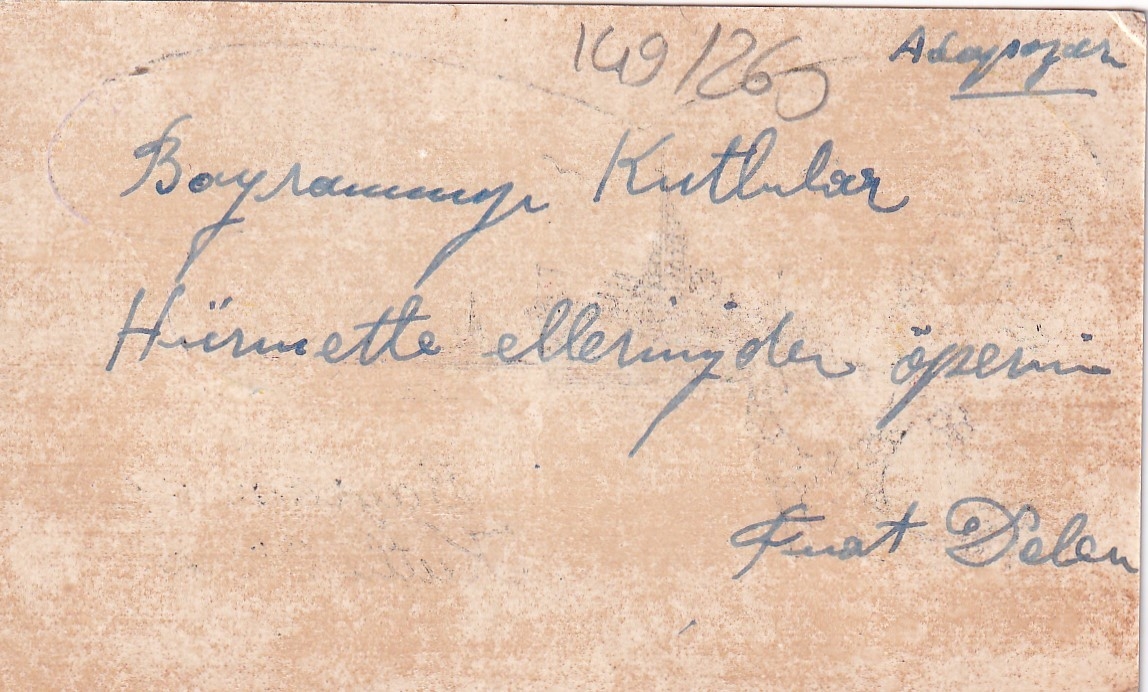 149/260 Adapazarı
Bayramınızı Kutlular
Hürmetle ellerinizden öperim
Fuat Delen